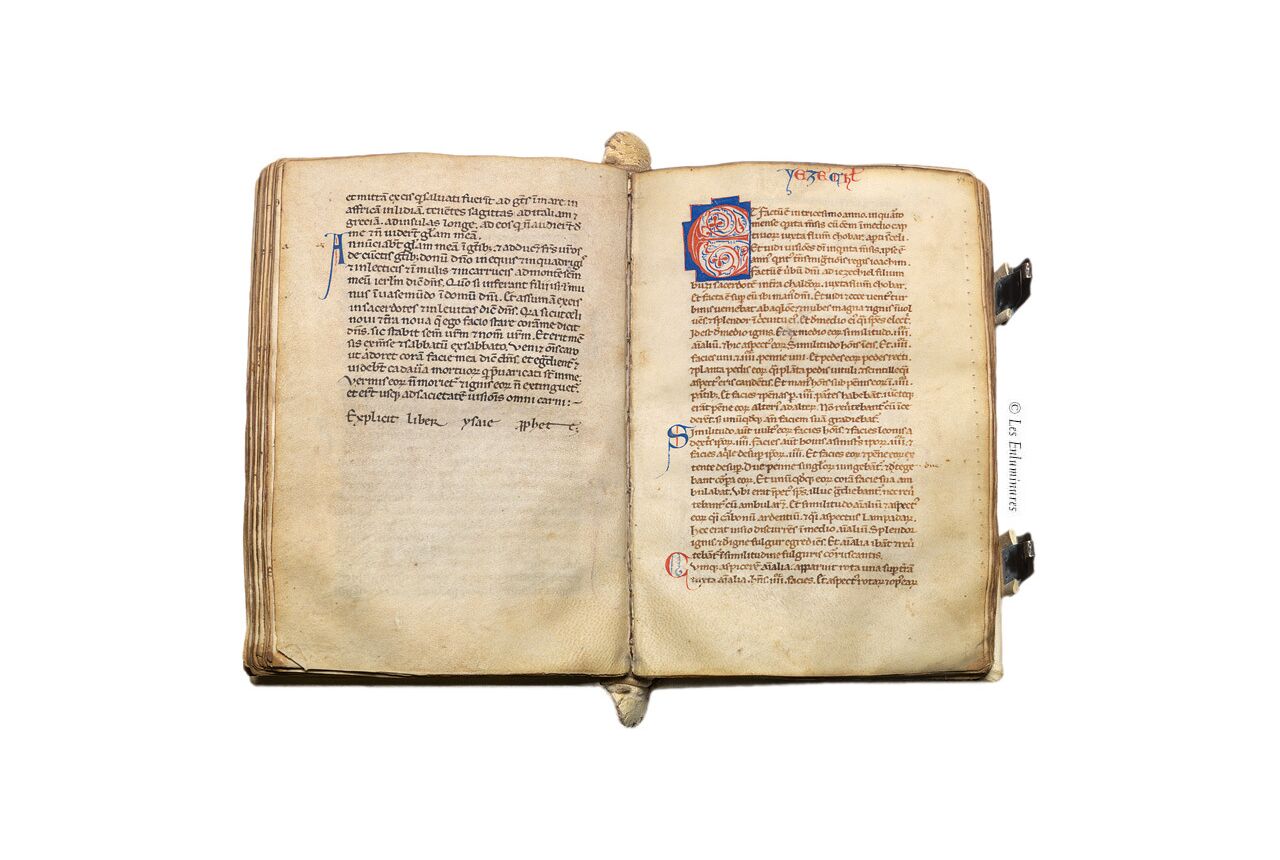 et mittā ex eis q̄ saluati fuerīt ad gētes ī mare in
affricā in lidiā tenētes sagittas. ad italiam ⁊
greciā. ad insulas longe. ad eos q̄ n̄ audierūt d̄
me ⁊ n̄ viderūt gl̄am meā.
Annūciabūt gl̄am meā ī gētib; ⁊ adducēt frēs vr̄os
de cūctis gētib; donū dn̄o in equis ⁊ in quadrigis
⁊ in lecticis ⁊ ī mulis ⁊ in carrucis ad montē sc̄m
meū ierl̄m dic̄ dn̄s. Q̄uo si inferant filii isrl̄ mu
nus ī uase mūdo ī domū dn̄i. Et assumā ex eis
in sacerdotes ⁊ in leuitas dic̄ dn̄s. Q̄ra sic̄ celi
noui ⁊ t̄ra noua q̄ ego facio stare corā me dicit
dn̄s. sic stabit sem̄ vr̄m ⁊ nom̄ vr̄m. Et erit mē
sis ex mēse ⁊ sabbatū ex sabbato. Veniet ōis caro
ut adoret corā facie mea dic̄ dn̄s. et egredient̄ ⁊
videbt̄ cadaūa mortuor̄ q̄ p̄uaricati st̄ ī me.
Vermis eor̄ n̄ moriet̄ ⁊ ignis eor̄ n̄ extinguet̄.
et er̄t usq; ad societatē visiōis omni carni:–
Explicit liber ysaie ꝓphet e:
yezechl̄
Et factū ē in tricesimo anno. in quarto
mense quīta mēsis cū eēm ī medio cap
tiuor̄ iuxta flum̄ chobar. apti s̄ celi.
Et uidi visiōes dī in quīta mēsis. ipse ē
ann⁹ qnt⁹ trn̄smigr̄iōis regis ioachim.
factū ē ūbū dn̄i ad iezechiel filium
buzi sacerdotē in t̄ra chaldeor̄. iuxta flum̄ chobar.
Et facta ē sup eū ibi man⁹ dn̄i. Et uidi ⁊ ecce uent⁹ tur
binis ueniebat ab aq̄lōe ⁊ nubes magna ⁊ ignis īuol
uēs ⁊ splendor ī circuitu ei⁹. Et de medio ei⁹ q̄si spēs elect̄.
id est de medio ignis. Et ex medio eor̄ similitudo .iiii.
aīaliū. ⁊ hic aspect⁹ eor̄. Similitudo hoīs ī eis. Et .iiii.
facies uni ⁊ .iiii. penne uni. Et pedes eor̄ pedes recti.
⁊ planta pedis eor̄ q̄si plāta pedis uituli ⁊ scintille q̄si
aspect⁹ eris candētis. Et man⁹ hoīs sub pēnis eor̄ ī .iiii.
pātib;. Et facies ⁊ pēnas p .iiii. pātes habebāt. iūcteq;
erāt pēne eor̄ alteri⁹ ad alter̄. Nō reūtebant̄ cū īce
derēt. s; unū qd̄q; an̄ faciem suā gradiebat̄.
Similitudo aūt uult⁹ eor̄ facies hoīs ⁊ facies leonis a
dextris ipor̄ .iiii. facies aūt bouis a sinistris ipor̄ .iiii. ⁊
facies aq̄le desup ipor̄ .iiii. Et facies eor̄ ⁊ pēne eor̄ ex
tente desup. Due penne singlor̄ iungebāt̄. ⁊ due tege
bant corpa eor̄. Et unū qd̄q; eor̄ corā facie sua am
bulabat. Vbi erat īpet⁹ sp̄us. illuc gradiebant̄ nec reū
tebant̄ cū ambularēt. Et similitudo aīaliū ⁊ aspect⁹
eor̄ q̄si carbonū ardentiū. ⁊ q̄si aspectus lampadar̄.
hec erat uisio discurrēs ī medio aīaliū. Splendor
ignis. ⁊ de igne fulgur egrediēs. Et aīalia ibāt ⁊ reū
tebāt̄ ī similitudine fulguris coruscantis.
Cumq; aspicerē aīalia. apparuit rota una sup t̄rā
iuxta aīalia. hn̄s .iiii. facies. Et aspect⁹ rotar̄ ⁊ op⁹ ear̄
© Les Enluminures